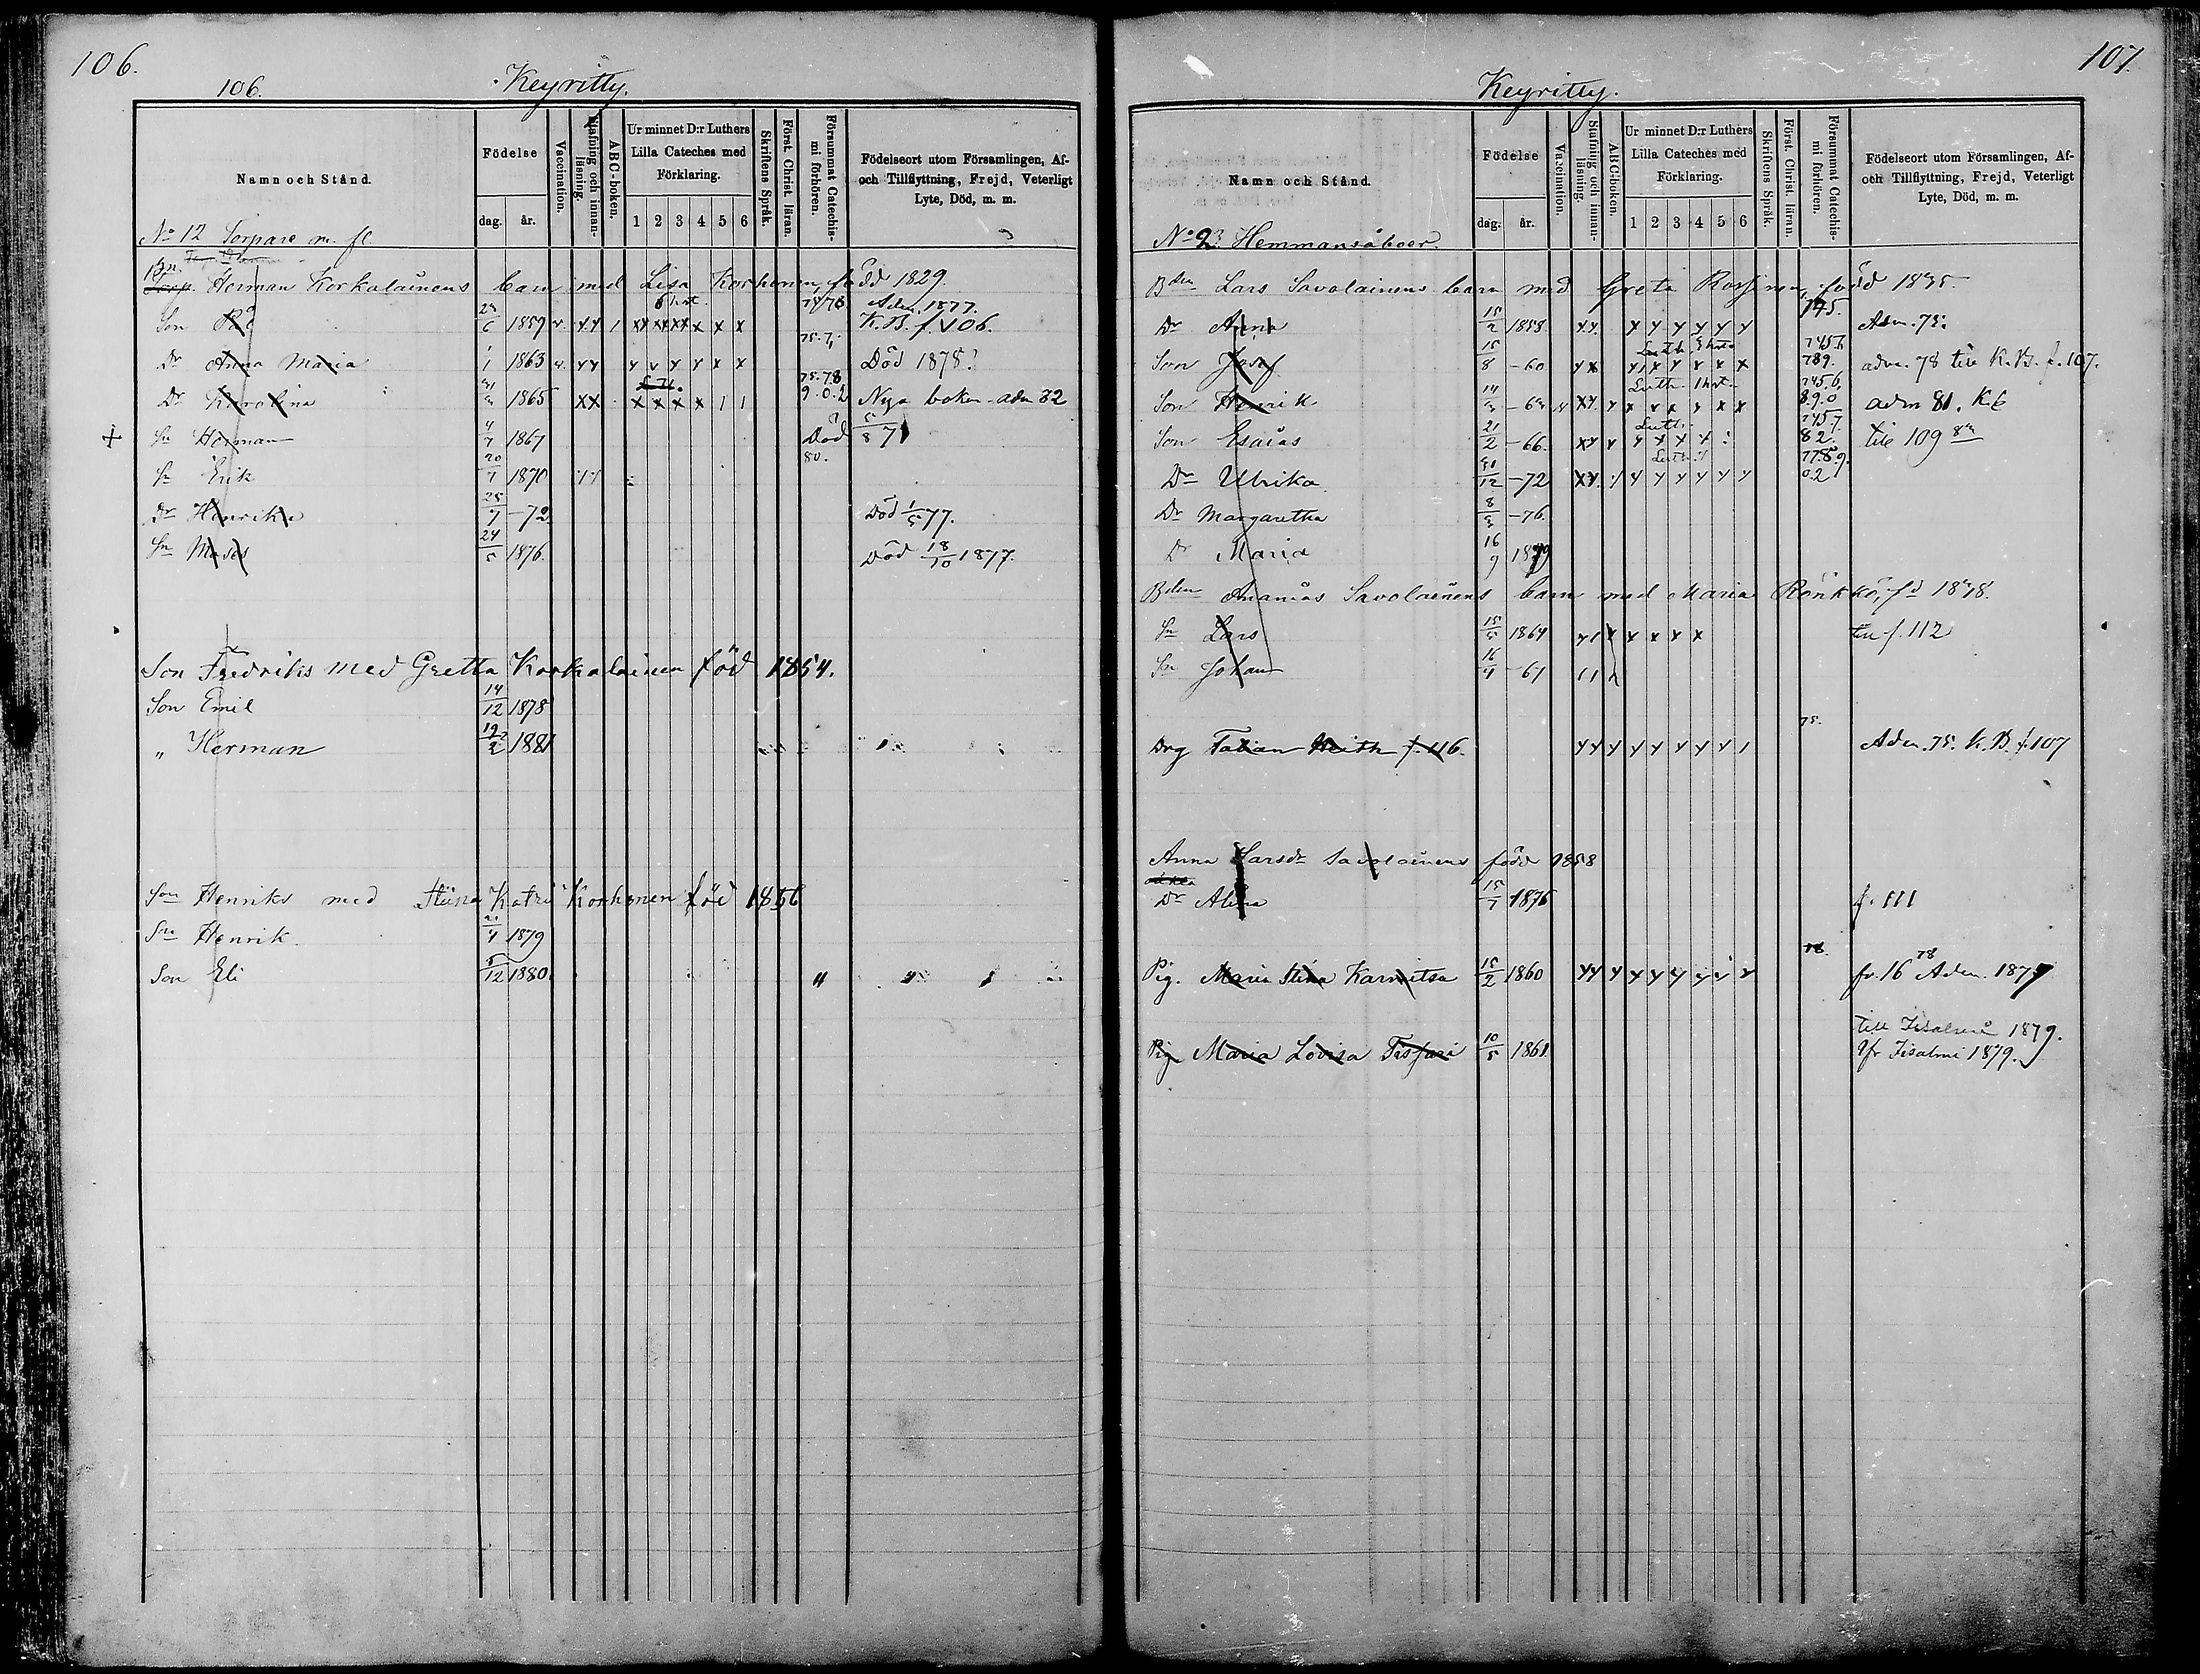 106.
106. Keyritty.
Namn och Stånd.
Födelse
dag. år.
Vaccination.
Stafning och innanläsning.
ABC-boken.
Ur minnet D:r Luthers Lilla Cateches med Förklaring.
1 2 3 4 5 6
Skriftens Språk.
Först. Christ. läran.
Försummat Catechismi förhören.
Födelseort utom Församlingen, Af- och Tillflyttning, Frejd, Veterligt Lyte, Död, m. m.
No 12 Torpare m. fl
Herman Korkalainens barn med Lisa Korhonen, född 1829.
Son 1859 Adm. 1877. K.B. f. 106.
Dr Anna Maria 1/1 1863 Död 1878.
Dr Karolina 1865 75.78 9.0.2 Nya boken adm 82
+ Sn Herman 4/7 1867 Död 5/8 71
Sn Erik 20/7 1870 80.
Dr Henrika 25/7 -72 Död 1/5 77.
Sn Moses 24/5 1876. Död 18/10 1877.
Son Fredriks med Gretta Korkalainen född 1854.
Son Emil 14/12 1878
" Herman 19/2 1881
Son Henriks med Stina Katri Korhonen föd 1856
Sn Henrik. 21/4 1879
Son Eli 5/12 1880.
107.
Keyritty.
Namn och Stånd.
Födelse
dag. år.
Vaccination.
Stafning och innanläsning.
ABC-boken.
Ur minnet D:r Luthers Lilla Cateches med Förklaring.
1 2 3 4 5 6
Skriftens Språk.
Först. Christ. läran.
Försummat Catechismi förhören.
Födelseort utom Församlingen, Af- och Tillflyttning, Frejd, Veterligt Lyte, Död, m. m.
No 23 Hemmansåboer.
Bden Lars Savolainens barn med Greta Rossinen, född 1835.
Dr Anna 15/2 1858 745. Adm. 75.
Son Josef 15/8 -60 745.6 789. adm. 78 till K.B. f. 107.
Son Henrik 745.6. 8.9.0 adm 81. K.B
Son Esaias 21/2 -66. 745.7 82. till 109
Dr Ulrika 31/12 -72 778.9. 0.2
Dr Margaretha 8/3 -76.
Dr Maria 16/9 1879
Bden Ananias Savolainens barn med Maria Rönkkö, fd 1838.
Sn Lars 15/5 1864 till f. 112
Sn Johan 16/4 -61
Drg Tatian Weith f. 116. 75. Adm. 75. K.B. f. 107
Anna Larsdr Savolainens född 1858
Dr Alina 15/7 1876 f. 111
Pig. Maria Stina Karnitsa 15/2 1860 78. fr. 16 78 Adm. 1877
till Iisalmi 1879.
Pig Maria Lovisa 10/5 1861 fr Iisalmi 1879.